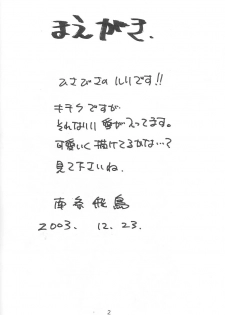 まえがき.
ひさびさのルリです!!
キチクですが
それなりに愛が入ってます。
可愛いく描けてるかな…って
見て下さいね
南 飛鳥
2003. 12. 23.
2